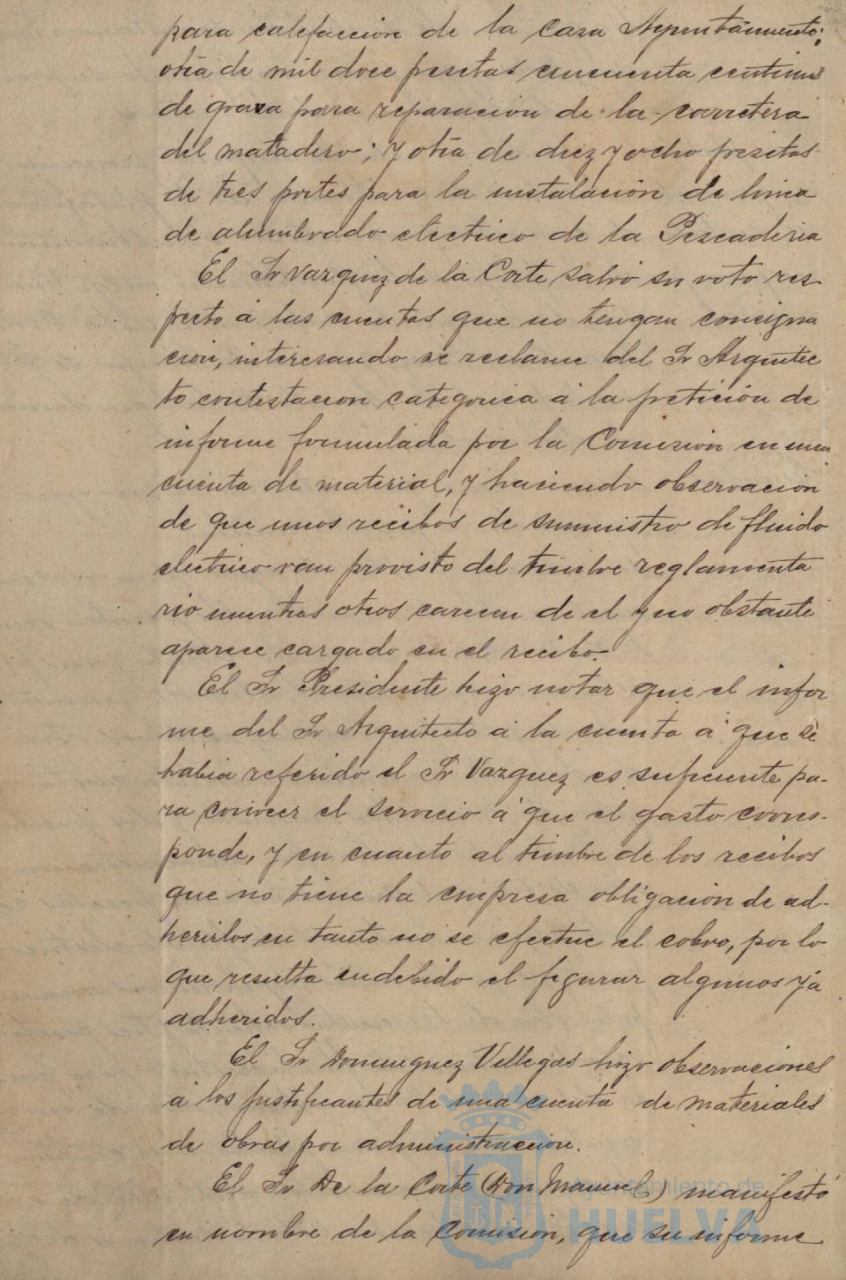 para calefacción de la Casa Ayuntamiento;
otra de mil doce pesetas cincuenta centims
de grava para reparacion de la carretera
del matadero; y otra de diez y ocho pesetas
de tres portes para la instalación de linea
de alumbrado electrico de la Pescaderia
El Sr Vazquez de la Corte salvó su voto res-
pecto á las cuentas que no tengan consigna
cion, interesando se reclame del Sr Arquitec
to contestacion categorica á la petición de
informe formulada por la Comisión en una
cuenta de material, y haciendo observación
de que unos recibos de suministro de fluido
electrico van provisto del timbre reglamenta
rio mientras otros carecen de el y no obstante
aparece cargado en el recibo.
El Sr Presidente hizo notar que el infor
me del Sr Arquitecto á la cuenta á que se
habia referido el Sr Vazquez es suficiente pa-
ra conocer el servicio á que el gasto corres-
ponde, y en cuanto al timbre de los recibos
que no tiene la empresa obligación de ad-
herirlos en tanto no se efectue el cobro, por lo
que resulta indebido el figurar algunos yá
adheridos.
El Sr Dominguez Villegas hizo observaciones
á los justificantes de una cuenta de materiales
de obras por administracion.
El Sr De la Corte (Don Manuel) manifestó
en nombre de la Comisión, que su informe
Ayuntamiento de
HUELVA